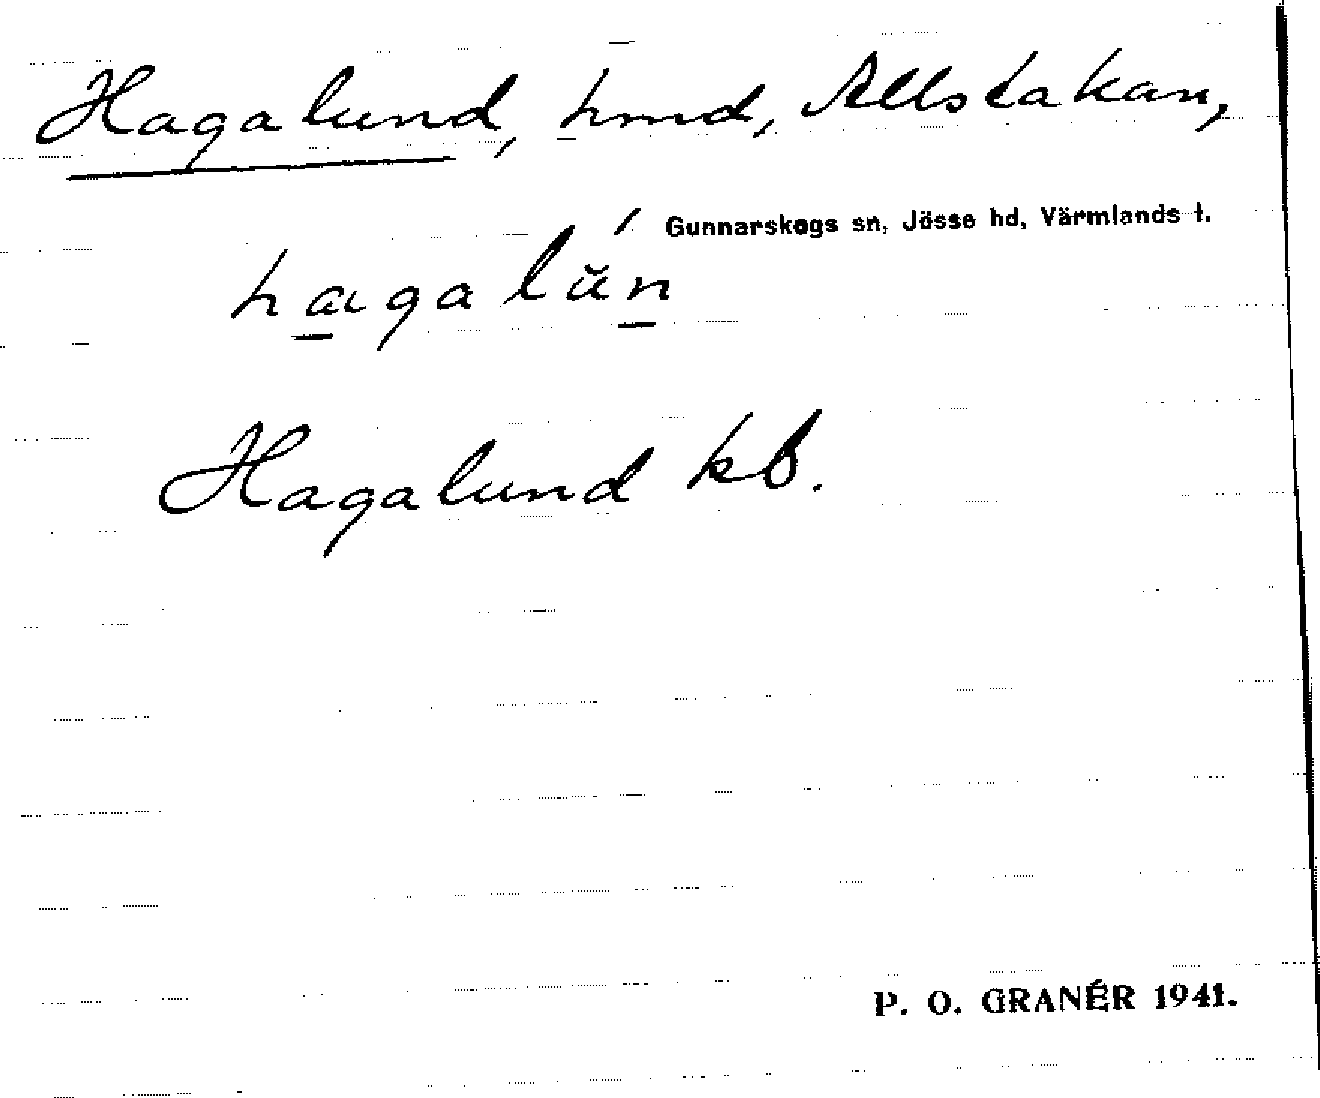 Hagalund, hmd, Allstakan,
Gunnarskogs sn, Jösse hd, Värmlands l.
hagalŭn
Hagalund kb.
P. O. GRANÉR 1941.